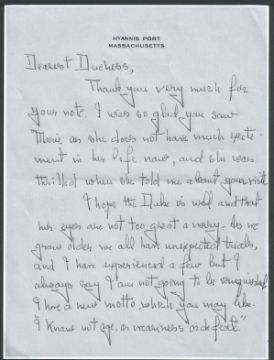 HYANNIS PORT
MASSACHUSETTS
Dearest Duchess,
Thank you very much for
your note. I was so glad you saw
as she does not have much excite-
ment in his life now, and she was
thrilled when she told me about your visit
I hope the Duke is well and that
his eyes are not too great a worry. As we
grow older we all have unexpected trials,
and I have experienced a few but I
always say I am not going to be vanquished
I have a new motto, which you may like.
"I know not age, or weariness or defeat"